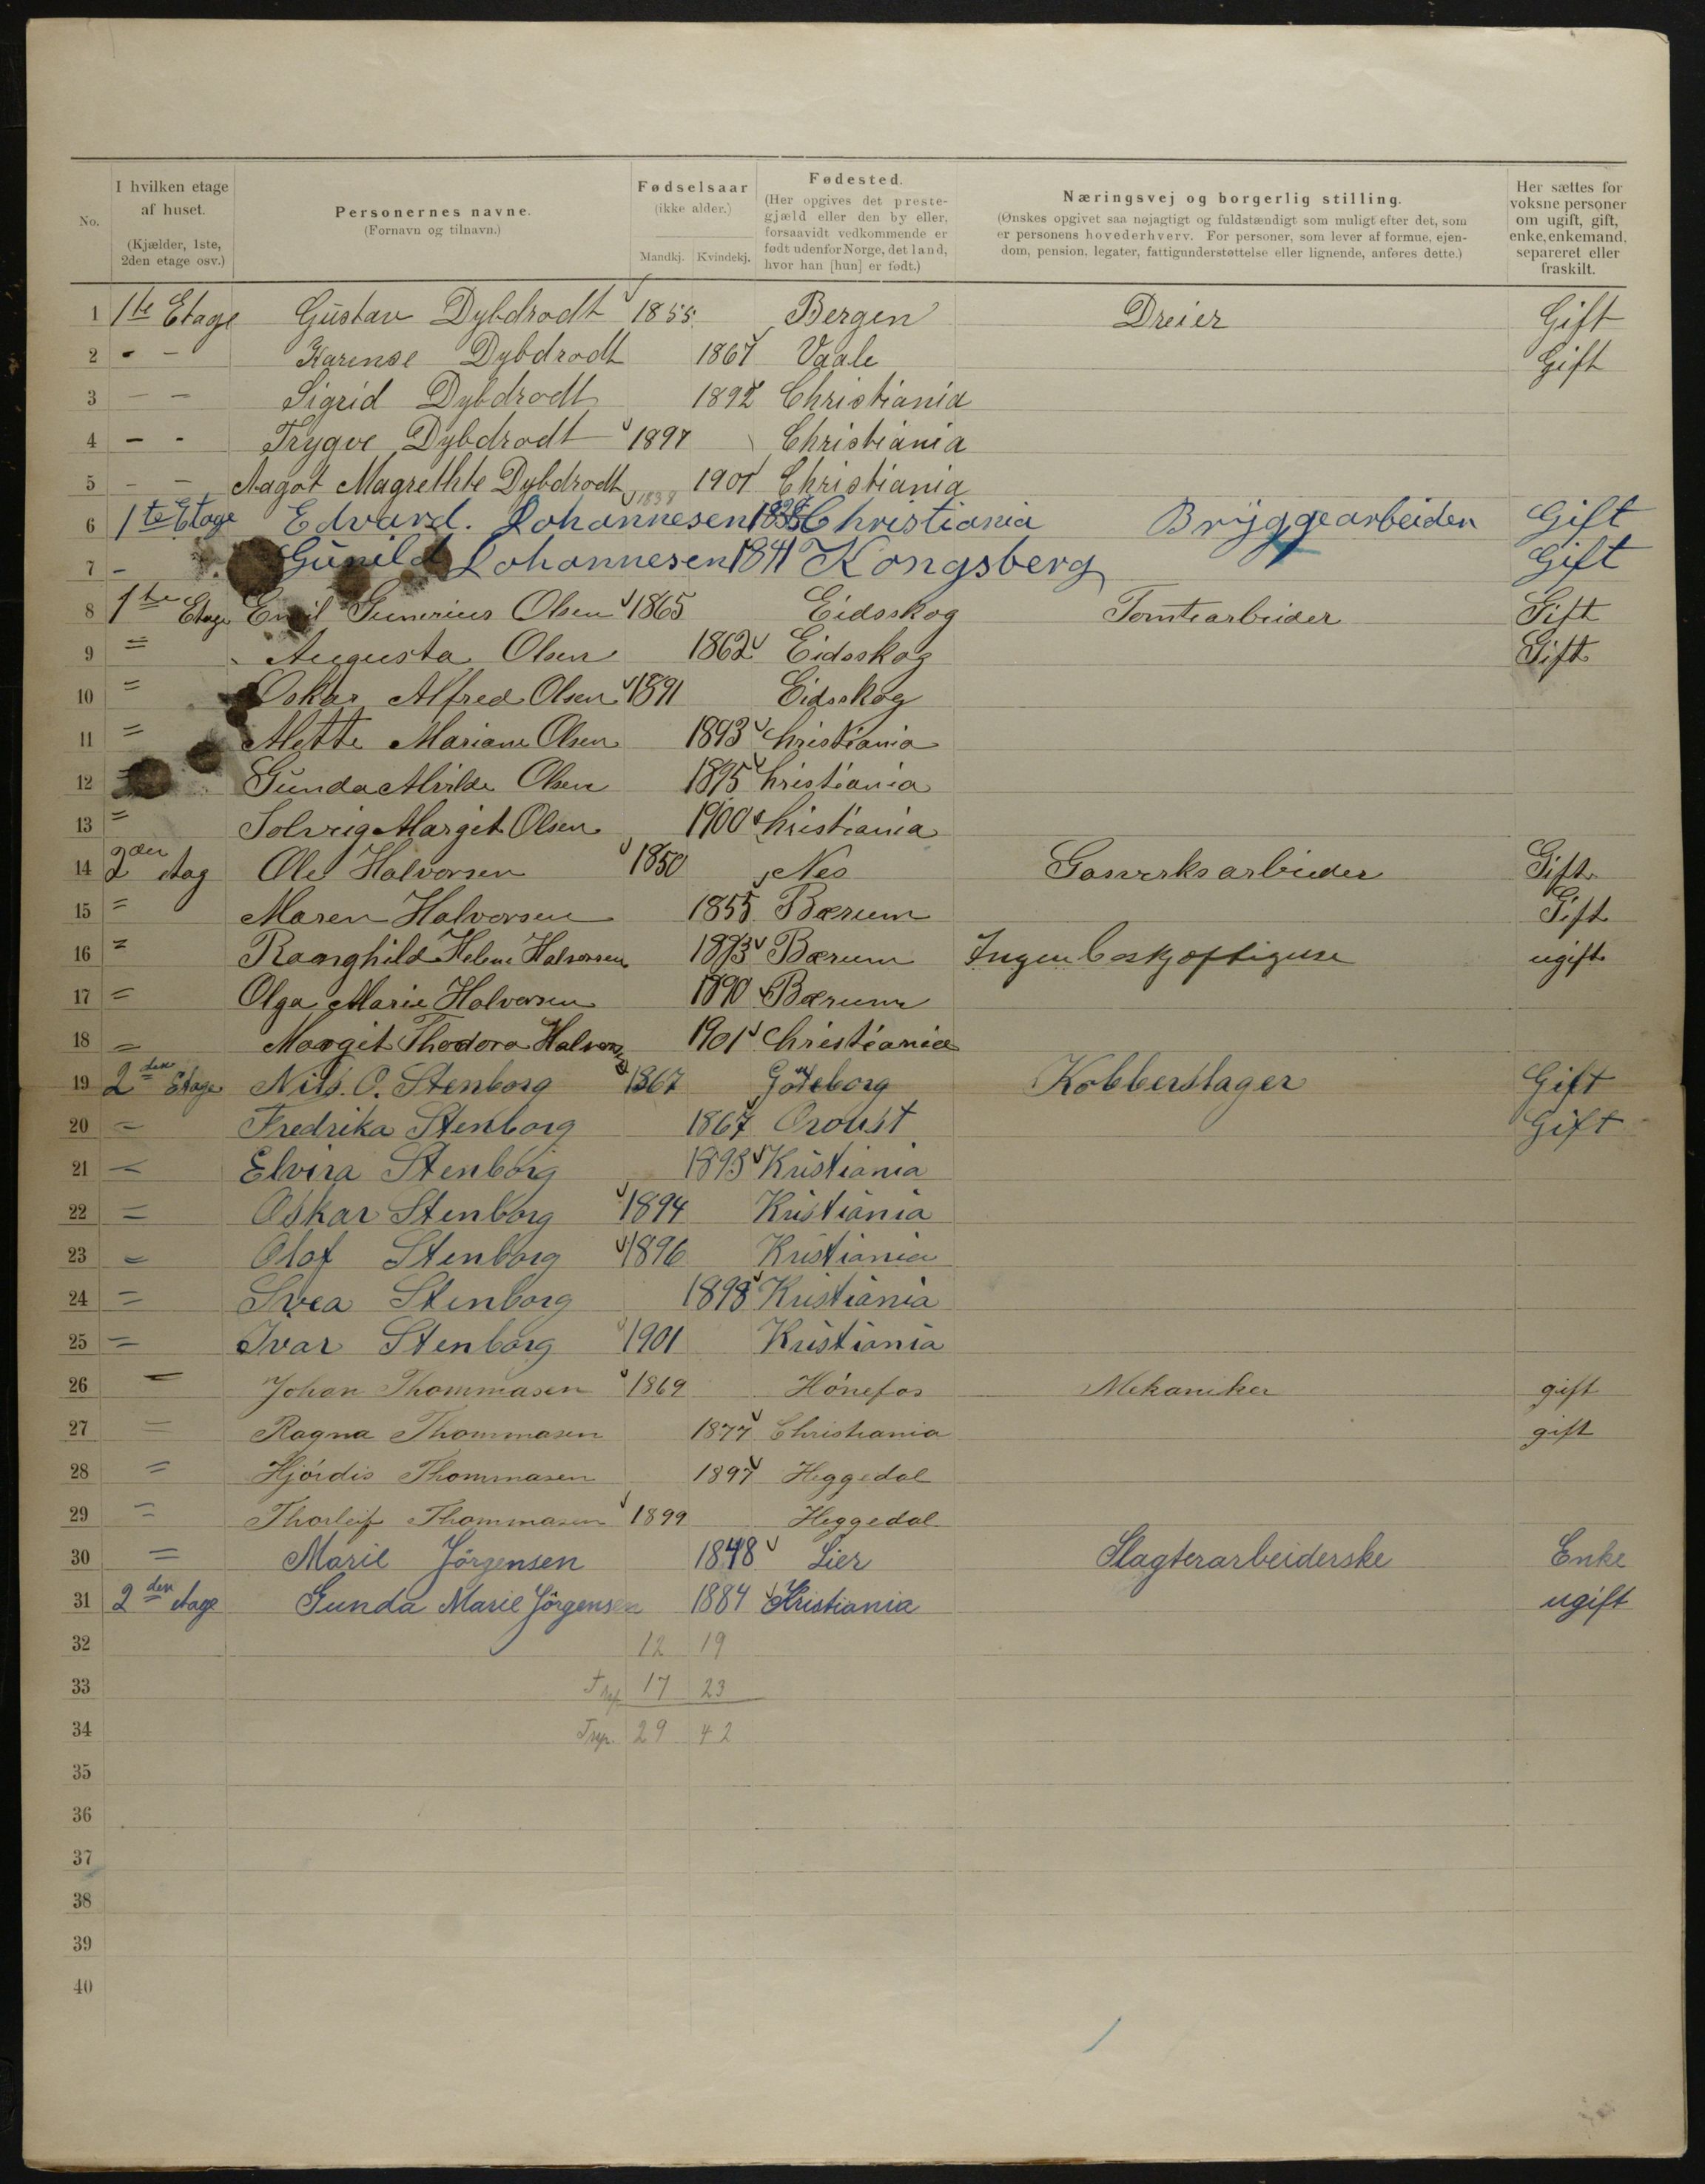 No. I hvilken etage af huset. (Kjælder, 1ste, 2den etage osv.) Personernes navne. (Fornavn og tilnavn.) Fødselsaar (ikke alder.) Mandkj. Kvindekj. Fødested. (Her opgives det prestegjæld eller den by eller, forsaavidt vedkommende er født udenfor Norge, det land, hvor han [hun] er født.) Næringsvej og borgerlig stilling. (Ønskes opgivet saa nøjagtigt og fuldstændigt som muligt efter det, som er personens hovederhverv. For personer, som lever af formue, ejendom, pension, legater, fattigunderstøttelse eller lignende, anføres dette.) Her sættes for voksne personer om ugift, gift, enke, enkemand, separeret eller fraskilt.
1 1te Etage Gustav Dybdrodt 1855 Bergen Dreier Gift
2 - - Karense Dybdrodt 1867 Vaale Gift
3 - - Sigrid Dybdrodt 1892 Christiania
4 - - Trygve Dybdrodt 1897 Christiania
5 - - Aagot Magrethte Dybdrodt 1901 Christiania
6 1te Etage Edvard. Johannesen 1838 Christiania Bryggearbeider Gift
7 - Gunild Johannesen 1841 Kongsberg Gift
8 1te Etage Emil Gunerius Olsen 1865 Eidsskog Tomtearbeider Gift
9 = Augusta Olsen 1862 Eidsskog Gift
10 = Oskar Alfred Olsen 1891 Eidsskog
11 = Mette Mariane Olsen 1893 Christiania
12 = Gunda Alvilde Olsen 1895 Christiania
13 = Solveig Margit Olsen 1900 Christiania
14 2den Etag Ole Halvorsen 1850 Nes Gasverksarbeider Gift
15 = Maren Halvorsen 1855 Bærum Gift
16 = Ranghild Helene Halvorsen 1883 Bærum Ingen beskjæftigelse ugift
17 = Olga Marie Halvorsen 1890 Bærum
18 = Margit Thodora Halvorsen 1901 Christiania
19 2den Etage Nils. O. Stenborg 1867 Göteborg Kobberslager Gift
20 - Fredrika Stenborg 1867 Oroust Gift
21 - Elvira Stenborg 1893 Kristiania
22 = Oskar Stenborg 1894 Kristiania
23 = Olof Stenborg 1896 Kristiania
24 = Svea Stenborg 1898 Kristiania
25 = Ivar Stenborg 1901 Kristiania
26 = Johan Thommasen 1869 Hönefos Mekaniker gift
27 = Ragna Thommasen 1877 Christiania gift
28 = Hjördis Thommasen 1897 Heggedal
29 = Thorleif Thommasen 1899 Heggedal
30 = Marie Jörgensen 1848 Lier Slagterarbeiderske Enke
31 2den Etage Gunda Marie Jörgensen 1884 Kristiania ugift
32 12 19
33 17 23
34 29 42
35
36
37
38
39
40